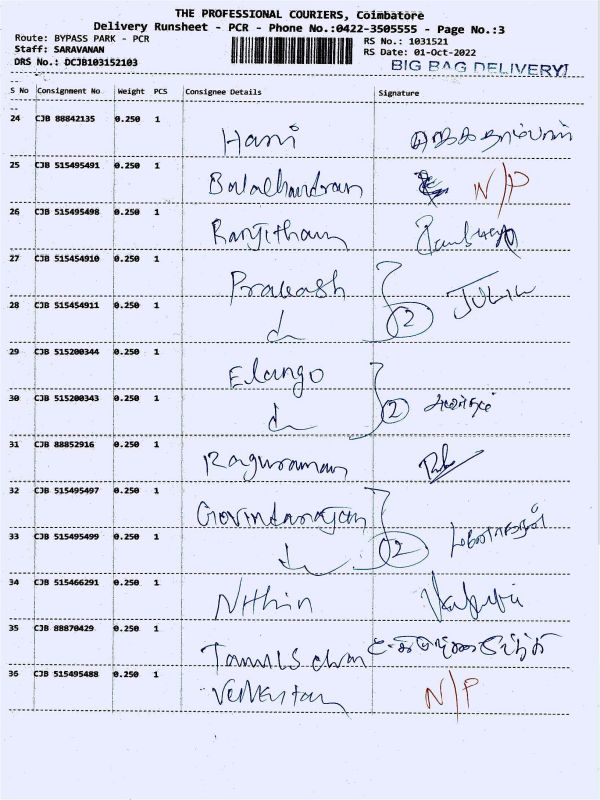 THE PROFESSIONAL COURIERS, Coimbatore
Delivery Runsheet - PCR - Phone No.:0422-3505555 - Page No.:3
Route: BYPASS PARK - PCR RS No.: 1031521
Staff: SARAVANAN RS Date: 01-Oct-2022
DRS No.: DCJB103152103 BIG BAG DELIVERY!
S No Consignment No Weight PCS Consignee Details Signature
24 CJB 88842135 0.250 1
Hani
25 CJB 515495491 0.250 1
Balachandran N/P
26 CJB 515495498 0.250 1
Ranjitham
27 CJB 515454910 0.250 1
Prakash
28 CJB 515454911 0.250 1
2
29 CJB 515200344 0.250 1
Elango
30 CJB 515200343 0.250 1
2
31 CJB 88852916 0.250 1
Raguraman
32 CJB 515495497 0.250 1
Govindarajan
33 CJB 515495499 0.250 1
2
34 CJB 515466291 0.250 1
Nithin
35 CJB 88870429 0.250 1
36 CJB 515495488 0.250 1
N/P